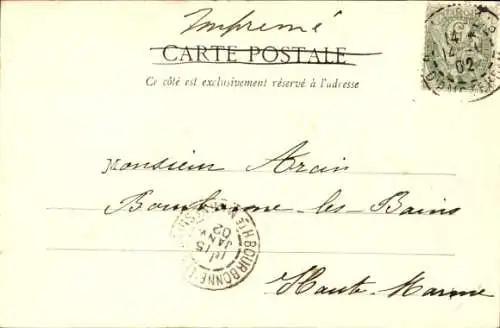 Imprimé
CARTE POSTALE
Ce côté est exclusivement réservé à l'adresse
Monsieur
Bourbonne-les Bains
Haute-Marne
14
02
BOURBONNE
HTE MARNE
15
JANV
02